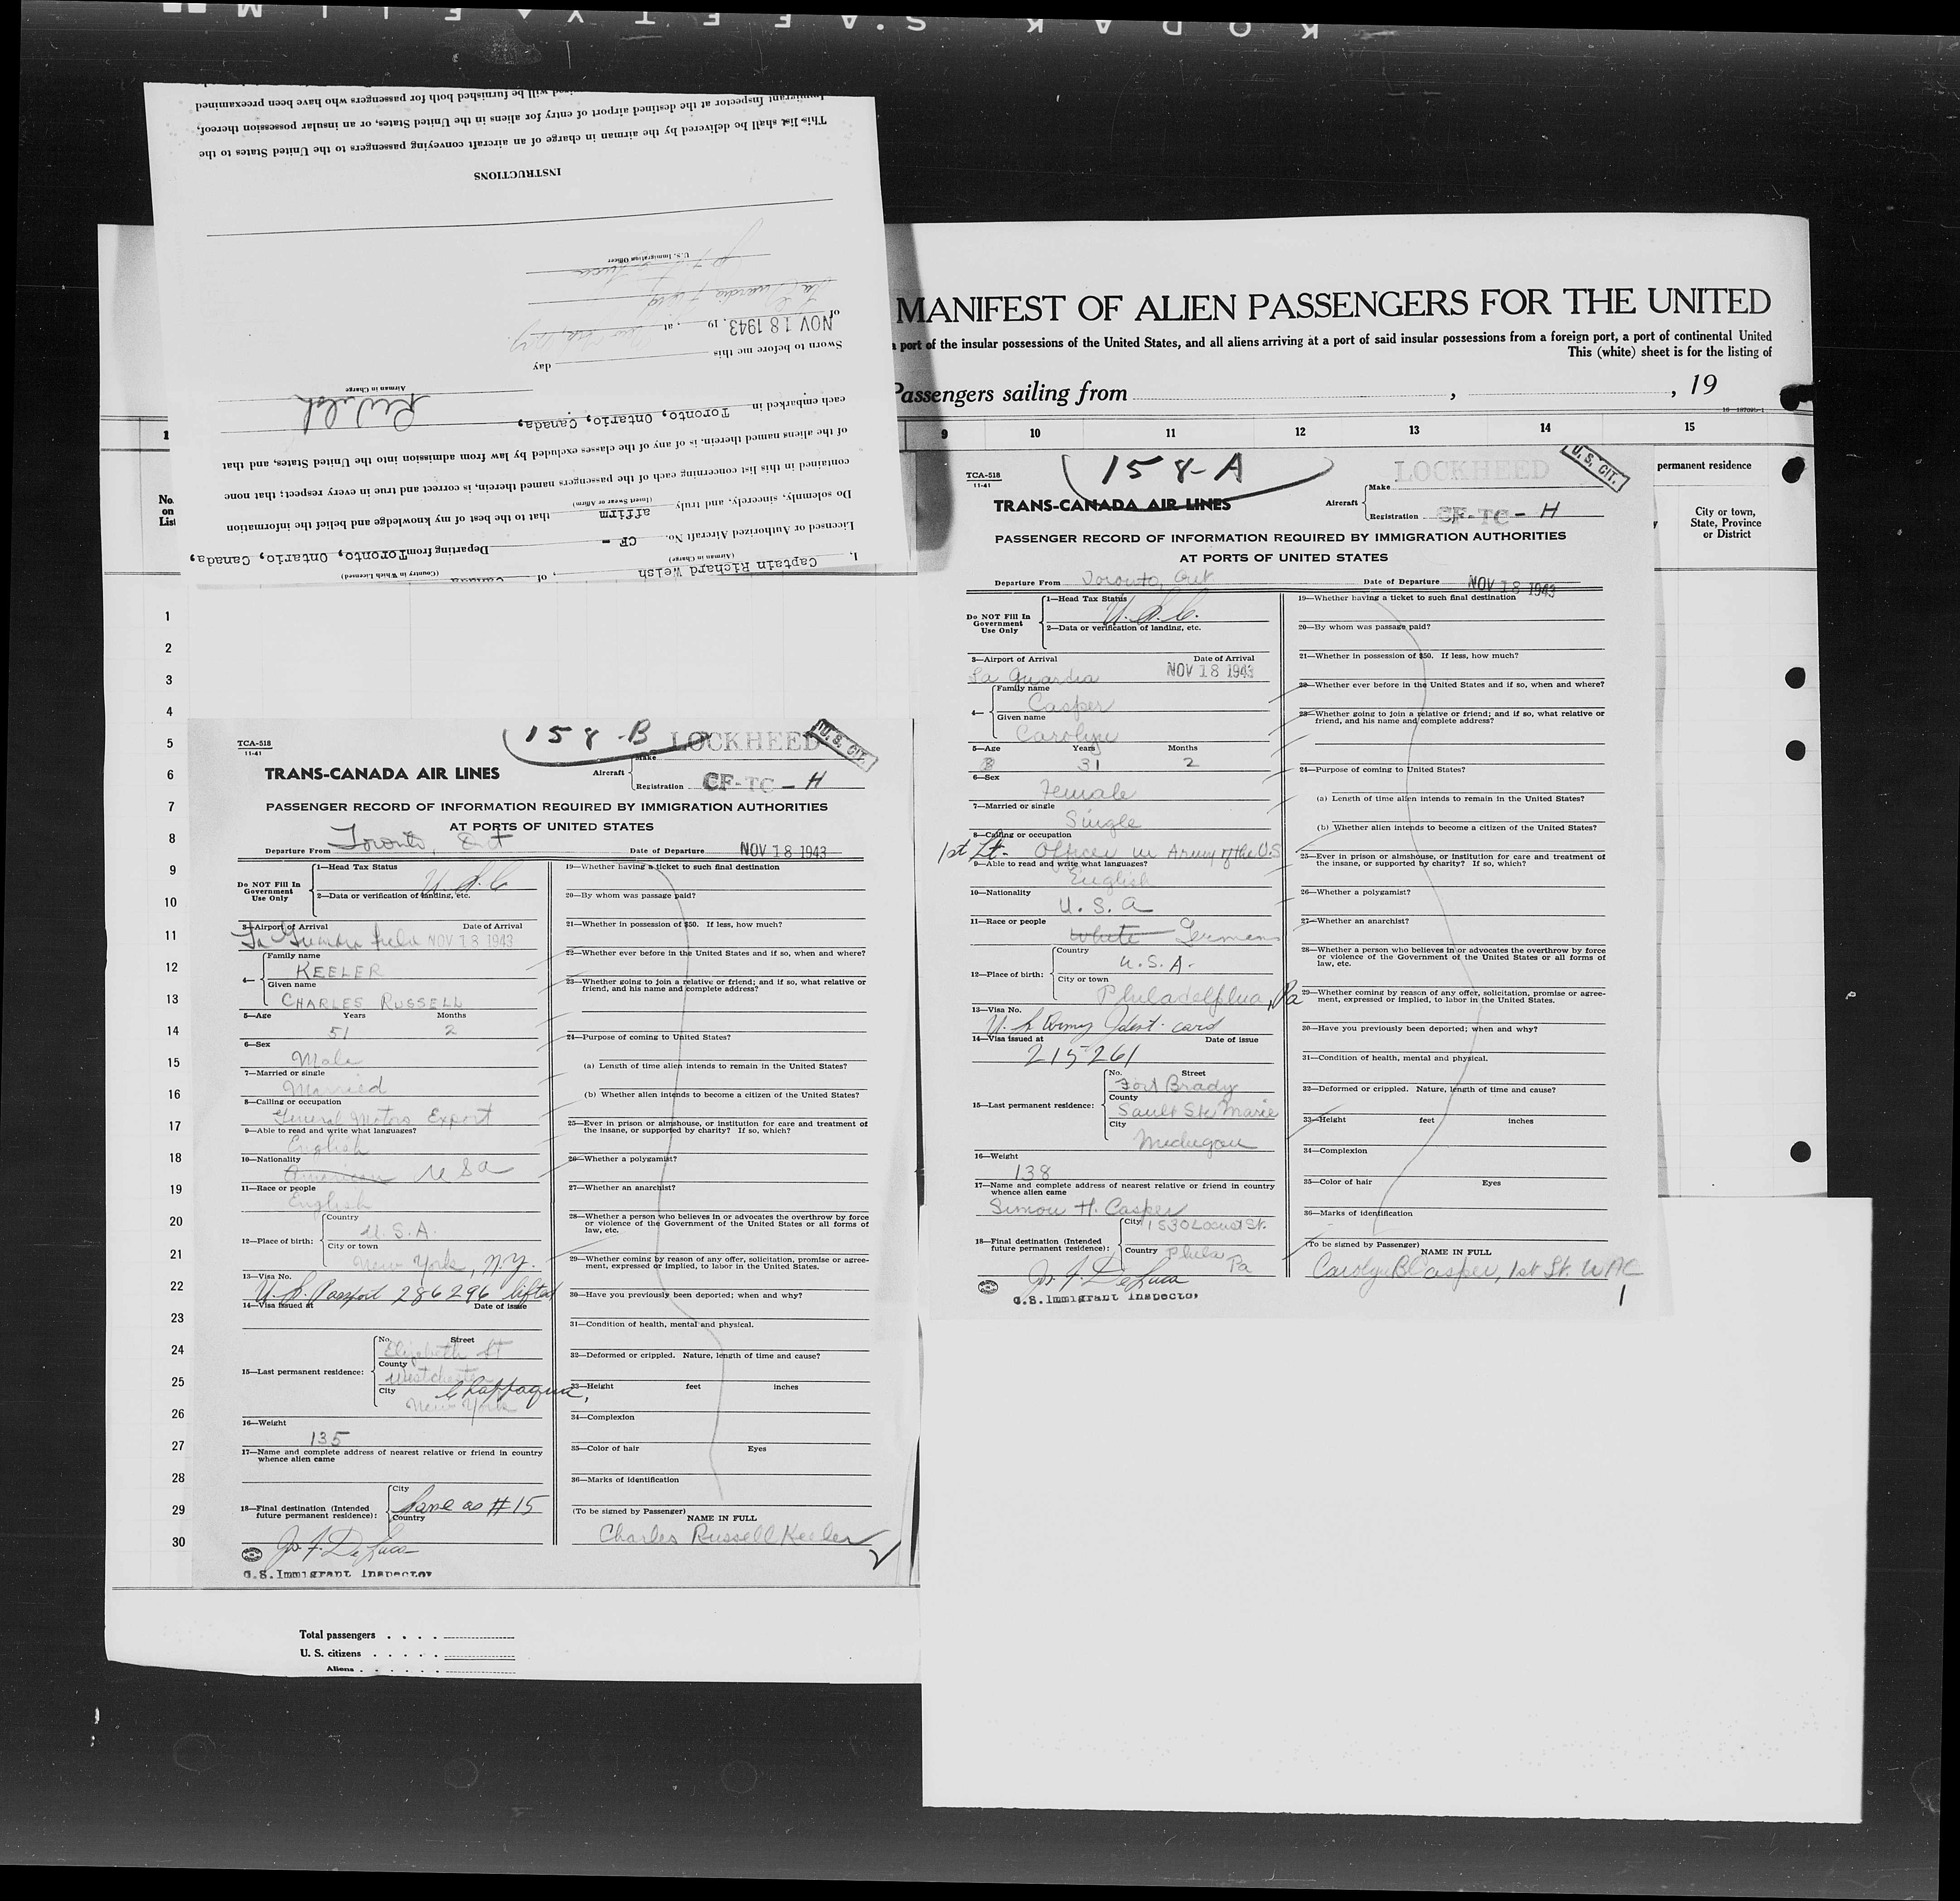 KODAK SAFETY FILM
sed will be furnished both for passengers who have been preexamined
Immigrant Inspector at the destined airport of entry for aliens in the United States, or an insular possession thereof,
This list shall be delivered by the airman in charge of an aircraft conveying passengers to the United States to the
INSTRUCTIONS
U.S. Immigration Officer
La Guardia Field
of NOV 18 1943, 19 , at New York, NY
Sworn to before me this day
Airman in Charge
R Welsh
each embarked in Toronto, Ontario, Canada,
of the aliens named therein, is of any of the classes excluded by law from admission into the United States, and that
contained in this list concerning each of the passengers named therein, is correct and true in every respect; that none
Do solemnly, sincerely, and truly affirm that to the best of my knowledge and belief the information
(Insert Swear or Affirm)
Licensed or Authorized Aircraft No. CF - Departing from Toronto, Ontario, Canada,
(Airman in Charge)
I, Captain Richard Welsh, of Canada
(Country in Which Licensed)
MANIFEST OF ALIEN PASSENGERS FOR THE UNITED
a port of the insular possessions of the United States, and all aliens arriving at a port of said insular possessions from a foreign port, a port of continental United
This (white) sheet is for the listing of
Passengers sailing from , , 19
1 9 10 11 12 13 14 15
No. on List
permanent residence
City or town, State, Province or District
1
2
3
4
5
6
7
8
9
10
11
12
13
14
15
16
17
18
19
20
21
22
23
24
25
26
27
28
29
30
158-B
LOCKHEED
U. S. CIT.
TCA-518
11-41
TRANS-CANADA AIR LINES
Aircraft
Make
Registration CF-TC-H
PASSENGER RECORD OF INFORMATION REQUIRED BY IMMIGRATION AUTHORITIES
AT PORTS OF UNITED STATES
Departure From Toronto, Ont Date of Departure NOV 18 1943
Do NOT Fill In Government Use Only
1—Head Tax Status
U.S.C
2—Data or verification of landing, etc.
3—Airport of Arrival Date of Arrival
La Guardia field NOV 18 1943
4—
Family name
KEELER
Given name
CHARLES RUSSELL
5—Age Years Months
51 2
6—Sex
Male
7—Married or single
Married
8—Calling or occupation
General Motors Export
9—Able to read and write what languages?
English
10—Nationality
American USA
11—Race or people
English
12—Place of birth:
Country
U.S.A.
City or town
New York, N.Y.
13—Visa No.
U.S. Passport 286296 lifted
14—Visa issued at Date of issue
15—Last permanent residence:
No. Street
Elizabeth St
County
Westchester
City Chappaqua,
New York
16—Weight
135
17—Name and complete address of nearest relative or friend in country
whence alien came
18—Final destination (Intended future permanent residence):
City
Same as #15
Country
Jos. F. DeLuca
U.S. Immigrant Inspector
19—Whether having a ticket to such final destination
20—By whom was passage paid?
21—Whether in possession of $50. If less, how much?
22—Whether ever before in the United States and if so, when and where?
23—Whether going to join a relative or friend; and if so, what relative or
friend, and his name and complete address?
24—Purpose of coming to United States?
(a) Length of time alien intends to remain in the United States?
(b) Whether alien intends to become a citizen of the United States?
25—Ever in prison or almshouse, or institution for care and treatment of
the insane, or supported by charity? If so, which?
26—Whether a polygamist?
27—Whether an anarchist?
28—Whether a person who believes in or advocates the overthrow by force
or violence of the Government of the United States or all forms of
law, etc.
29—Whether coming by reason of any offer, solicitation, promise or agree-
ment, expressed or implied, to labor in the United States.
30—Have you previously been deported; when and why?
31—Condition of health, mental and physical.
32—Deformed or crippled. Nature, length of time and cause?
33—Height feet inches
34—Complexion
35—Color of hair Eyes
36—Marks of identification
(To be signed by Passenger)
NAME IN FULL
Charles Russell Keeler
Total passengers . . . .
U. S. citizens . . . . .
Aliens . . . . . .
158-A
LOCKHEED
U. S. CIT.
TCA-518
11-41
TRANS-CANADA AIR LINES
Aircraft
Make
Registration CF-TC-H
PASSENGER RECORD OF INFORMATION REQUIRED BY IMMIGRATION AUTHORITIES
AT PORTS OF UNITED STATES
Departure From Toronto, Ont Date of Departure NOV 18 1943
Do NOT Fill In Government Use Only
1—Head Tax Status
U.S.C.
2—Data or verification of landing, etc.
3—Airport of Arrival Date of Arrival
La Guardia NOV 18 1943
4—
Family name
Casper
Given name
Carolyn
5—Age Years Months
B 31 2
6—Sex
Female
7—Married or single
Single
8—Calling or occupation
1st Lt. Officer in Army of the U.S
9—Able to read and write what languages?
English
10—Nationality
U.S.A
11—Race or people
White German
12—Place of birth:
Country
U.S.A.
City or town
Philadelphia, Pa
13—Visa No.
U.S. Army Ident. card
14—Visa issued at Date of issue
215261
15—Last permanent residence:
No. Street
Fort Brady
County
Sault Ste Marie
City
Michigan
16—Weight
138
17—Name and complete address of nearest relative or friend in country
whence alien came
Simon H. Casper
18—Final destination (Intended future permanent residence):
City 1530 Locust St.
Country Phila
Pa
Jos. F. DeLuca
U.S. Immigrant Inspector
19—Whether having a ticket to such final destination
20—By whom was passage paid?
21—Whether in possession of $50. If less, how much?
22—Whether ever before in the United States and if so, when and where?
23—Whether going to join a relative or friend; and if so, what relative or
friend, and his name and complete address?
24—Purpose of coming to United States?
(a) Length of time alien intends to remain in the United States?
(b) Whether alien intends to become a citizen of the United States?
25—Ever in prison or almshouse, or institution for care and treatment of
the insane, or supported by charity? If so, which?
26—Whether a polygamist?
27—Whether an anarchist?
28—Whether a person who believes in or advocates the overthrow by force
or violence of the Government of the United States or all forms of
law, etc.
29—Whether coming by reason of any offer, solicitation, promise or agree-
ment, expressed or implied, to labor in the United States.
30—Have you previously been deported; when and why?
31—Condition of health, mental and physical.
32—Deformed or crippled. Nature, length of time and cause?
33—Height feet inches
34—Complexion
35—Color of hair Eyes
36—Marks of identification
(To be signed by Passenger)
NAME IN FULL
Carolyn B Casper, 1st Lt. WAC
1